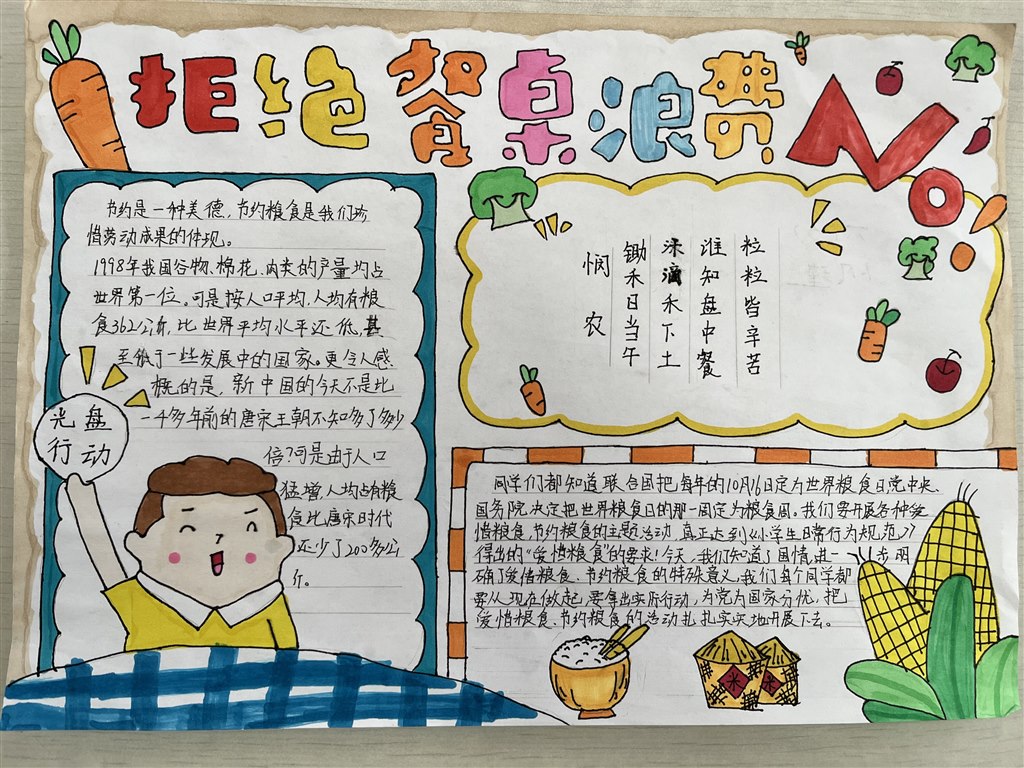 拒绝餐桌浪费 No
节约是一种美德，节约粮食是我们珍
惜劳动成果的体现。
1998年我国谷物、棉花、肉类的产量均占
世界第一位。可是按人口平均，人均有粮
食362公斤，比世界平均水平还低，甚
至低于一些发展中的国家。更令人感
概的是，新中国的今天不是比
一千多年前的唐宋王朝不知多了多少
倍？可是由于人口
猛增，人均占有粮
食比唐宋时代
还少了200多公
斤。
光盘
行动
悯农
锄禾日当午
汗滴禾下土
谁知盘中餐
粒粒皆辛苦
同学们都知道联合国把每年的10月16日定为世界粮食日，党中央、
国务院决定把世界粮食日的那一周定为粮食周。我们要开展各种爱
惜粮食，节约粮食的主题活动，真正达到《小学生日常行为规范》
得出的"爱惜粮食"的要求！今天，我们知道了国情，进一步明
确了爱惜粮食、节约粮食的特殊意义，我们每个同学都
要从现在做起，要拿出实际行动，为党为国家分忧，把
爱惜粮食、节约粮食的活动扎扎实实地开展下去。
米
米